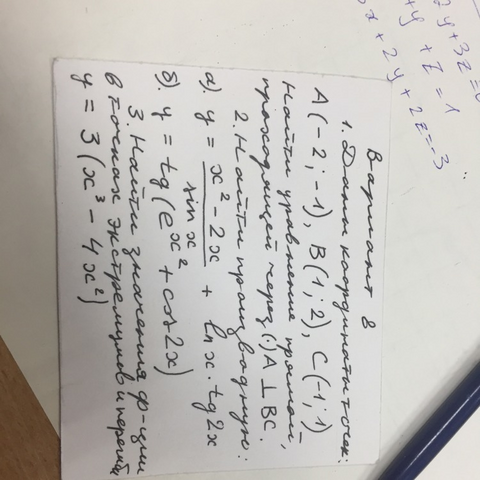 Вариант 8
1. Даны координаты точек:
A(-2;-1), B(1;2), C(-1;1)
Найти уравнение прямой,
проходящей через (·)A ⊥ BC.
2. Найти производную:
а). y = x² - 2x / sin x² + ln x · tg 2x
б). y = tg(e^x² + cos 2x)
3. Найти значения ф-ции
в точках экстремумов и перегиба
y = 3(x³ - 4x²)
2y+3z=
+y+z=1
x+2y+2z=-3